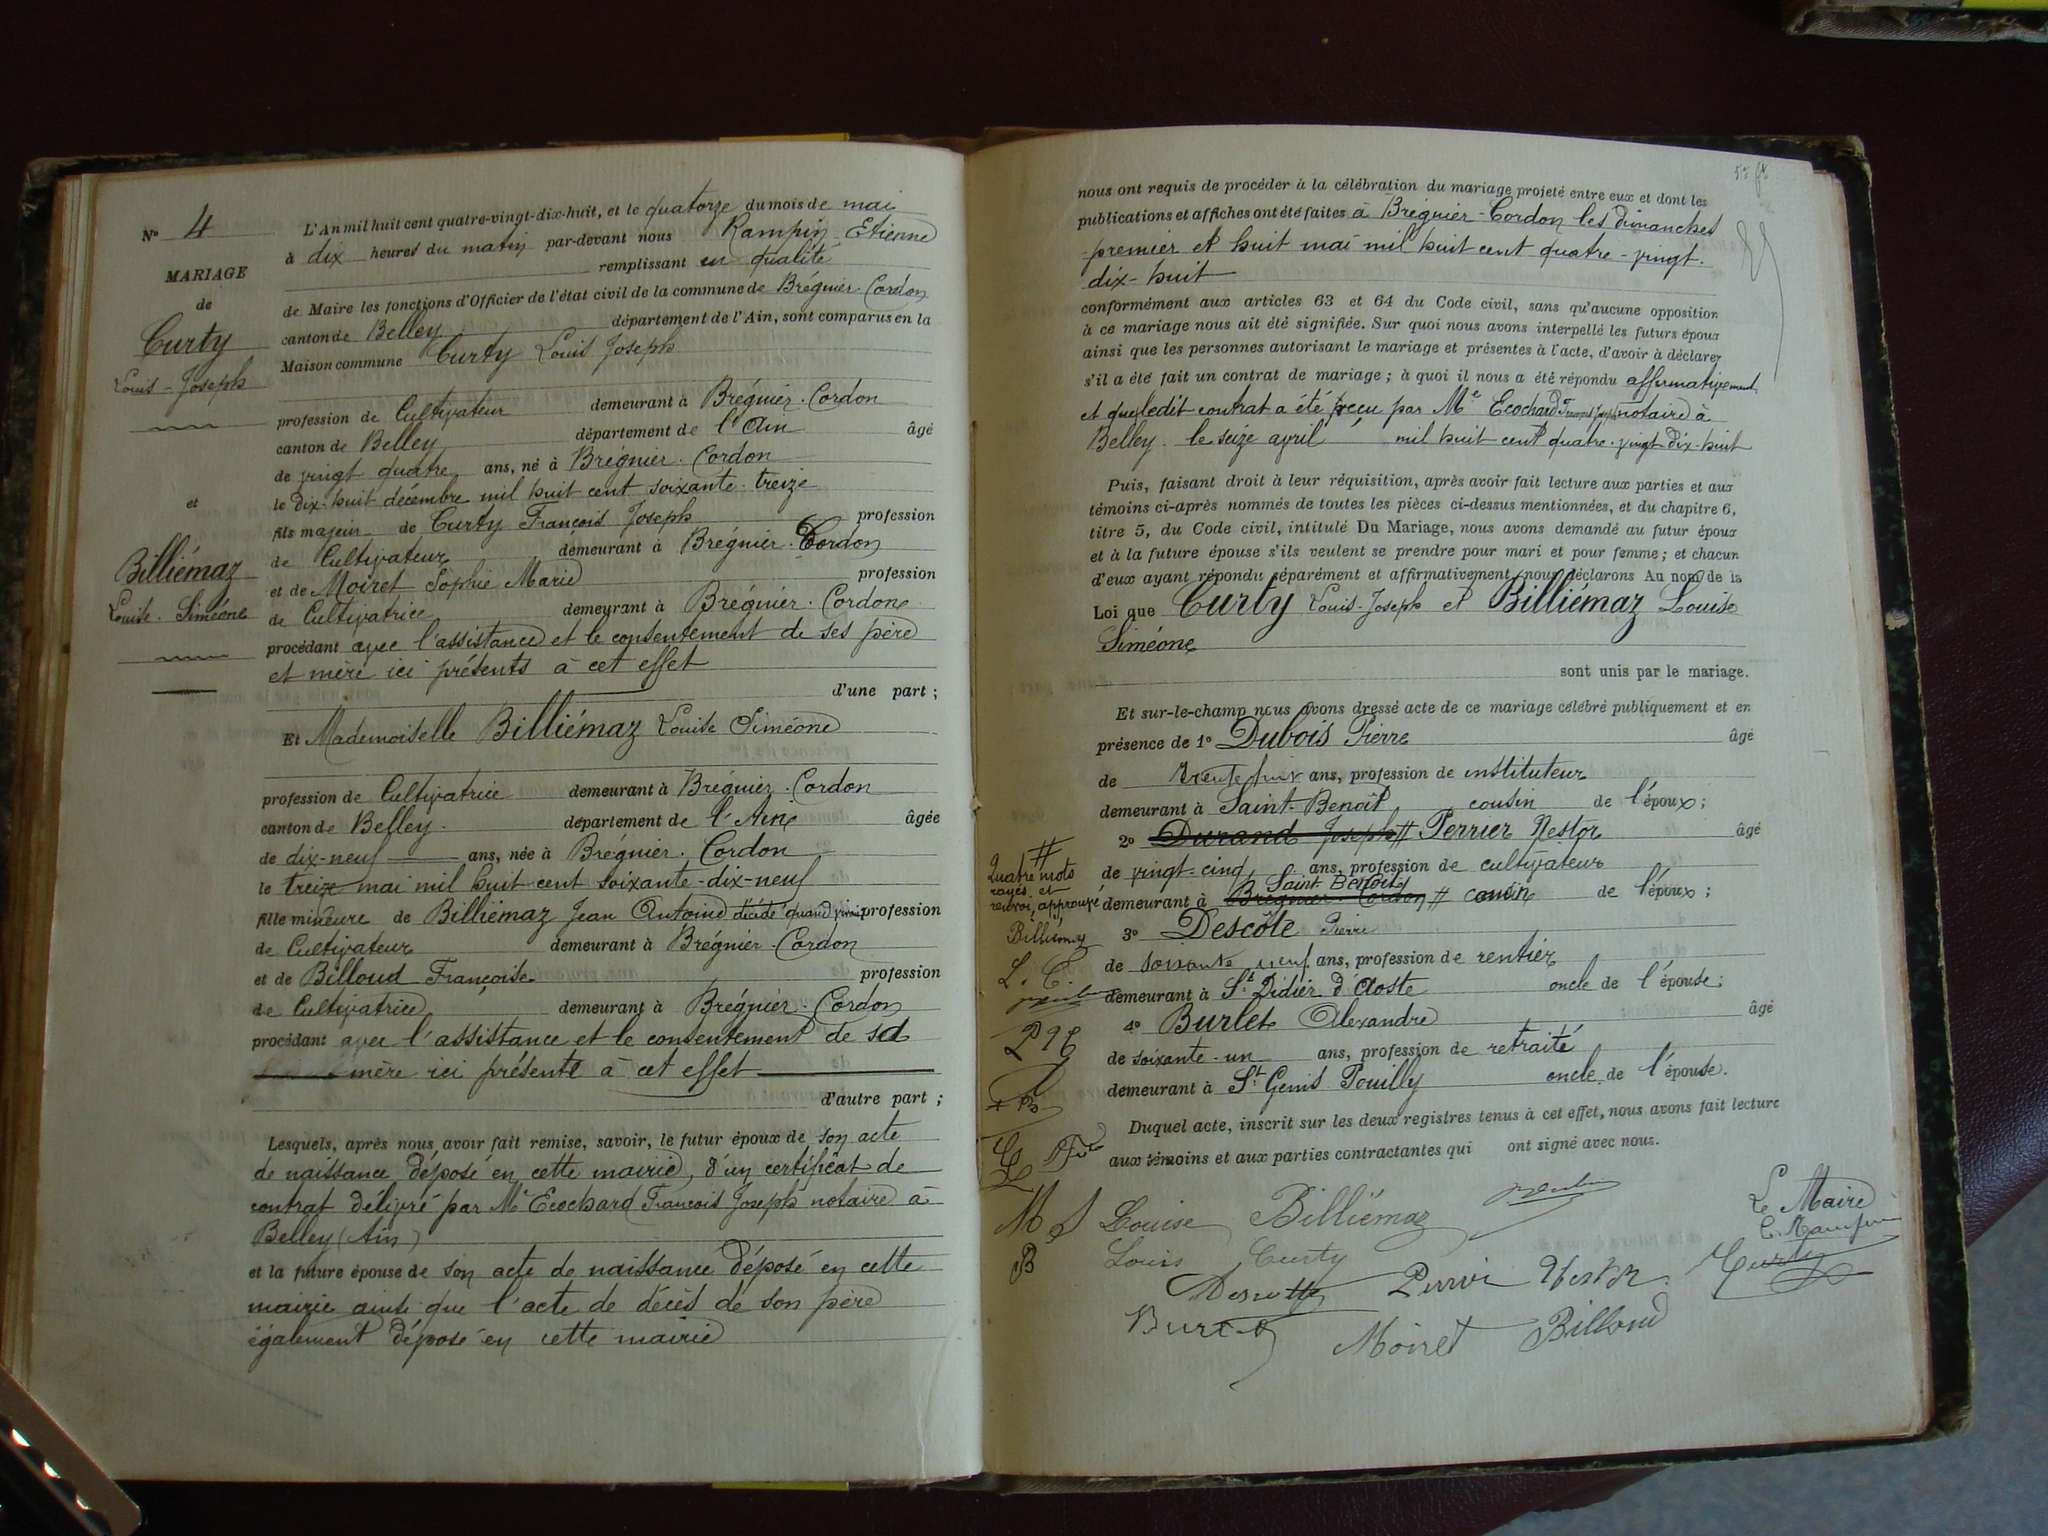 N° 4
MARIAGE
de
Curty
Louis-Joseph
et
Billiémaz
Louise-Siméone
L'An mil huit cent quatre-vingt-dix-huit, et le quatorze du mois de mai
à dix heures du matin par-devant nous Rampin Etienne
remplissant en qualité
de Maire les fonctions d'Officier de l'état civil de la commune de Brégnier-Cordon
canton de Belley département de l'Ain, sont comparus en la
Maison commune Curty Louis Joseph
profession de Cultivateur demeurant à Brégnier-Cordon
canton de Belley département de l'Ain âgé
de vingt quatre ans, né à Brégnier-Cordon
le dix-huit décembre mil huit cent soixante-treize
fils majeur de Curty François Joseph profession
de Cultivateur demeurant à Brégnier-Cordon
et de Moiret Sophie Marie profession
de Cultivatrice demeurant à Brégnier-Cordon
procédant avec l'assistance et le consentement de ses père
et mère ici présents à cet effet
d'une part ;
Et Mademoiselle Billiémaz Louise Siméone
profession de Cultivatrice demeurant à Brégnier-Cordon
canton de Belley département de l'Ain âgée
de dix-neuf ans, née à Brégnier-Cordon
le treize mai mil huit cent soixante-dix-neuf
fille mineure de Billiémaz Jean Antoine décédé quand vivait profession
de Cultivateur demeurant à Brégnier-Cordon
et de Billoud Françoise profession
de Cultivatrice demeurant à Brégnier-Cordon
procédant avec l'assistance et le consentement de sa
mère ici présente à cet effet
d'autre part ;
Lesquels, après nous avoir fait remise, savoir, le futur époux de son acte
de naissance déposé en cette mairie, d'un certificat de
contrat délivré par Me Ecochard François Joseph notaire à
Belley (Ain)
et la future épouse de son acte de naissance déposé en cette
mairie ainsi que l'acte de décès de son père
également déposé en cette mairie
nous ont requis de procéder à la célébration du mariage projeté entre eux et dont les
publications et affiches ont été faites à Brégnier-Cordon les dimanches
premier et huit mai mil huit cent quatre-vingt-
dix-huit
conformément aux articles 63 et 64 du Code civil, sans qu'aucune opposition
à ce mariage nous ait été signifiée. Sur quoi nous avons interpellé les futurs époux
ainsi que les personnes autorisant le mariage et présentes à l'acte, d'avoir à déclarer
s'il a été fait un contrat de mariage ; à quoi il nous a été répondu affirmativement
et que ledit contrat a été reçu par Me Ecochard François Joseph notaire à
Belley le seize avril mil huit cent quatre-vingt-dix-huit
Puis, faisant droit à leur réquisition, après avoir fait lecture aux parties et aux
témoins ci-après nommés de toutes les pièces ci-dessus mentionnées, et du chapitre 6,
titre 5, du Code civil, intitulé Du Mariage, nous avons demandé au futur époux
et à la future épouse s'ils veulent se prendre pour mari et pour femme ; et chacun
d'eux ayant répondu séparément et affirmativement, nous déclarons Au nom de la
Loi que Curty Louis-Joseph et Billiémaz Louise
Siméone
sont unis par le mariage.
Et sur-le-champ nous avons dressé acte de ce mariage célébré publiquement et en
présence de 1° Dubois Pierre âgé
de ans, profession de instituteur
demeurant à Saint-Benoît cousin de l'époux ;
2° Durand Joseph # Perrier Nestor âgé
de vingt-cinq ans, profession de cultivateur
Saint Benoît
demeurant à Brégnier-Cordon # cousin de l'époux ;
3° Descôte Pierre
de soixante neuf ans, profession de rentier
demeurant à St Didier d'Aoste oncle de l'épouse ;
4° Burlet Alexandre âgé
de soixante-un ans, profession de retraité
demeurant à St Genis Pouilly oncle de l'épouse.
Duquel acte, inscrit sur les deux registres tenus à cet effet, nous avons fait lecture
aux témoins et aux parties contractantes qui ont signé avec nous.
#
Quatre mots
rayés et
renvoi approuvé
Billiémaz
L. C.
M S
B
Louise Billiémaz
Le Maire
E. Rampin
Louis Curty
Curty
Perrier Nestor
Burlet
Moiret Billoud